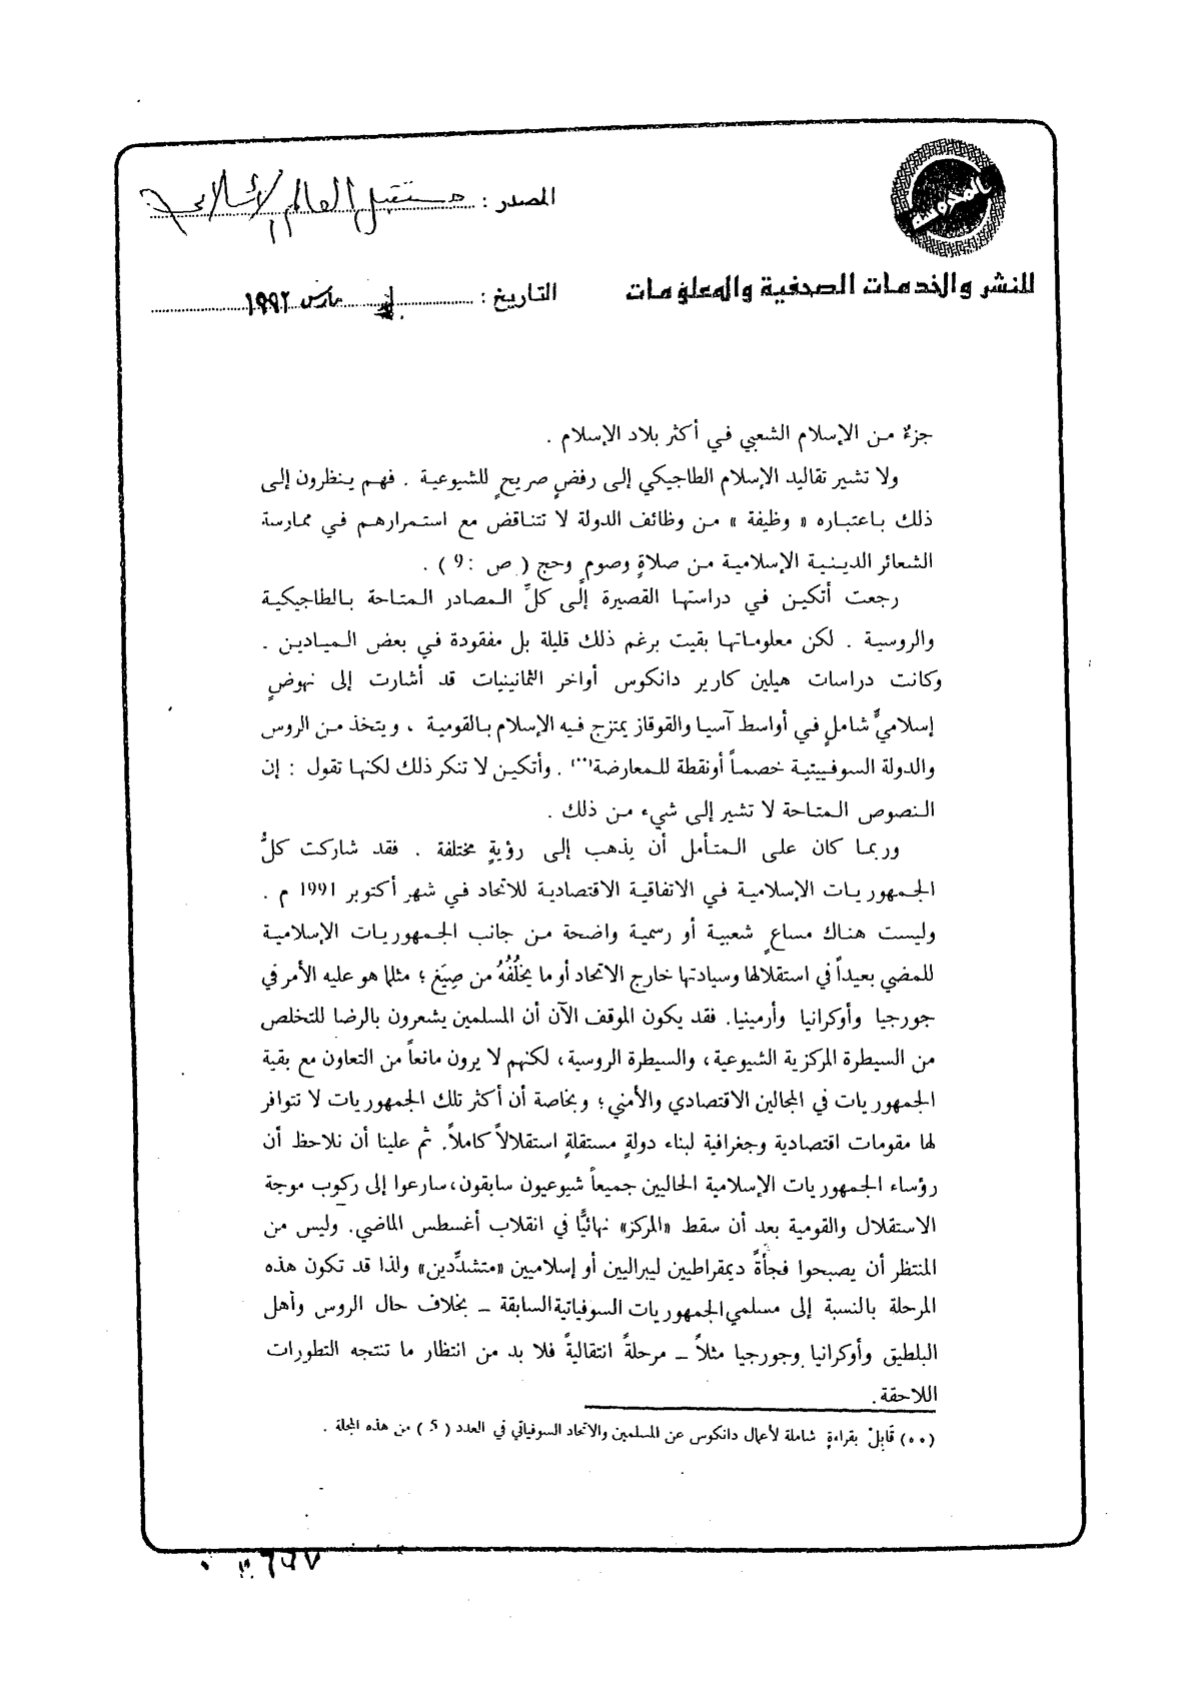 المصدر : مستقبل العالم الإسلامي
للنشر والخدمات الصحفية والمعلومات
التاريخ : مارس ١٩٩٢
جزءٌ من الإسلام الشعبي في أكثر بلاد الإسلام .
ولا تشير تقاليد الإسلام الطاجيكي إلى رفضٍ صريحٍ للشيوعية . فهم ينظرون إلى
ذلك باعتباره « وظيفة » من وظائف الدولة لا تتناقض مع استمرارهم في ممارسة
الشعائر الدينية الإسلامية من صلاةٍ وصومٍ وحج ( ص :9 ) .
رجعت أتكين في دراستها القصيرة إلى كلِّ المصادر المتاحة بالطاجيكية
والروسية . لكن معلوماتها بقيت برغم ذلك قليلة بل مفقودة في بعض الميادين .
وكانت دراسات هيلين كارير دانكوس أواخر الثمانينيات قد أشارت إلى نهوضٍ
إسلاميٍّ شاملٍ في أواسط آسيا والقوقاز يمتزج فيه الإسلام بالقومية ، ويتخذ من الروس
والدولة السوفييتية خصماً أونقطة للمعارضة(٥٥) . وأتكين لا تنكر ذلك لكنها تقول : إن
النصوص المتاحة لا تشير إلى شيء من ذلك .
وربما كان على المتأمل أن يذهب إلى رؤيةٍ مختلفة . فقد شاركت كلُّ
الجمهوريات الإسلامية في الاتفاقية الاقتصادية للاتحاد في شهر أكتوبر 1991 م .
وليست هناك مساعٍ شعبية أو رسمية واضحة من جانب الجمهوريات الإسلامية
للمضي بعيداً في استقلالها وسيادتها خارج الاتحاد أو ما يخلُفُهُ من صِيَغ ؛ مثلما هو عليه الأمر في
جورجيا وأوكرانيا وأرمينيا. فقد يكون الموقف الآن أن المسلمين يشعرون بالرضا للتخلص
من السيطرة المركزية الشيوعية، والسيطرة الروسية، لكنهم لا يرون مانعاً من التعاون مع بقية
الجمهوريات في المجالين الاقتصادي والأمني ؛ وبخاصة أن أكثر تلك الجمهوريات لا تتوافر
لها مقومات اقتصادية وجغرافية لبناء دولةٍ مستقلةٍ استقلالاً كاملاً. ثم علينا أن نلاحظ أن
رؤساء الجمهوريات الإسلامية الحاليين جميعاً شيوعيون سابقون،سارعوا إلى ركوب موجة
الاستقلال والقومية بعد أن سقط «المركز» نهائيًّا في انقلاب أغسطس الماضي. وليس من
المنتظر أن يصبحوا فجأةً ديمقراطيين ليبراليين أو إسلاميين «متشدِّدين» ولذا قد تكون هذه
المرحلة بالنسبة إلى مسلمي الجمهوريات السوفياتية السابقة – بخلاف حال الروس وأهل
البلطيق وأوكرانيا وجورجيا مثلاً – مرحلةً انتقاليةً فلا بد من انتظار ما تنتجه التطورات
اللاحقة .
(٥٥) قَابِلْ بقراءةٍ شاملة لأعمال دانكوس عن المسلمين والاتحاد السوفياتي في العدد ( 5 ) من هذه المجلة .